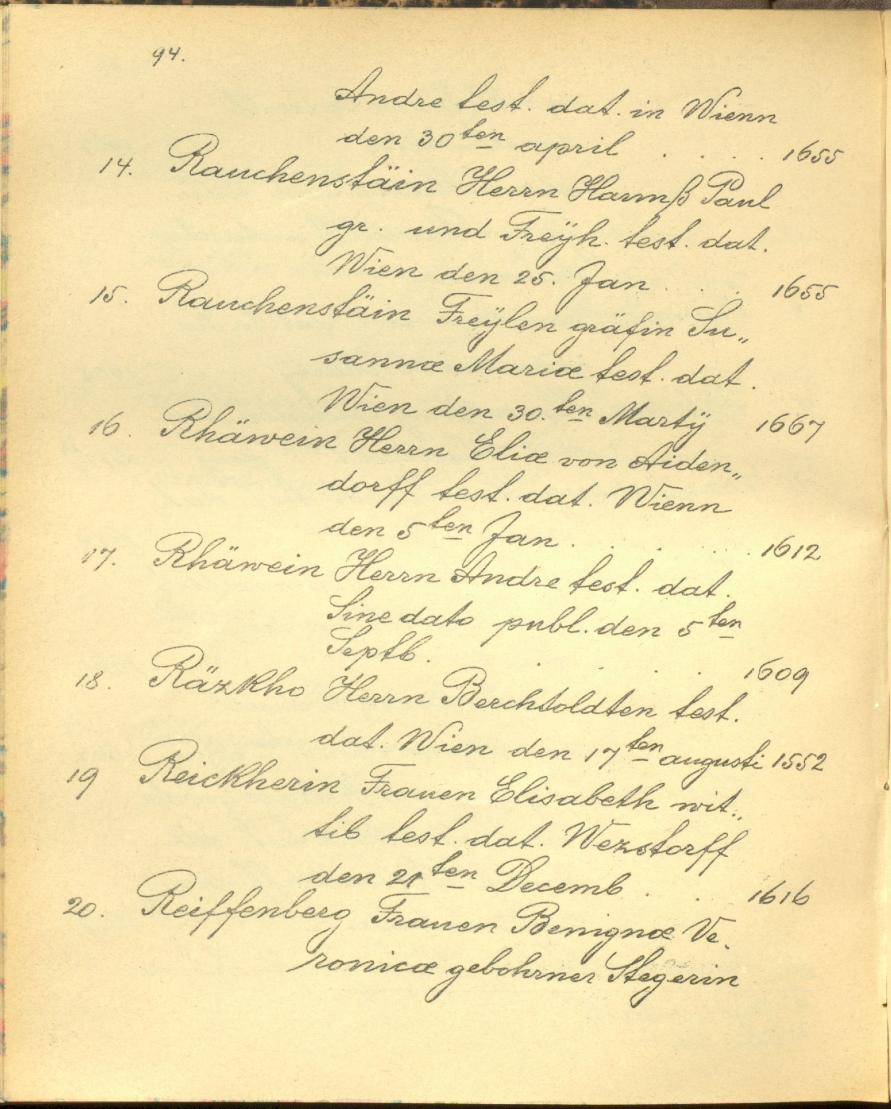 94.
Andre test. dat. in Wienn
den 30ten april . . . . 1655
14. Rauchenstäin Herrn Hannß Paul
gr. und Freÿh. test. dat.
Wien den 25. Jan . . . 1655
15. Rauchenstäin Freÿlen gräfin Su„
sannæ Mariæ test. dat.
Wien den 30.ten Martÿ 1667
16. Rhäwein Herrn Eliæ von Aiden„
dorff test. dat. Wienn
den 5ten Jan . . . . 1612
17. Rhäwein Herrn Andre test. dat.
Sine dato publ. den 5ten
Septb. . . . . 1609
18. Räzkho Herrn Berchtoldten test.
dat. Wien den 17ten augusti 1552
19 Reickherin Frauen Elisabeth wit„
tib test. dat. Wezstorff
den 21ten Decemb . . . 1616
20. Reiffenberg Frauen Benignæ Ve„
ronicæ gebohrner Stegerin